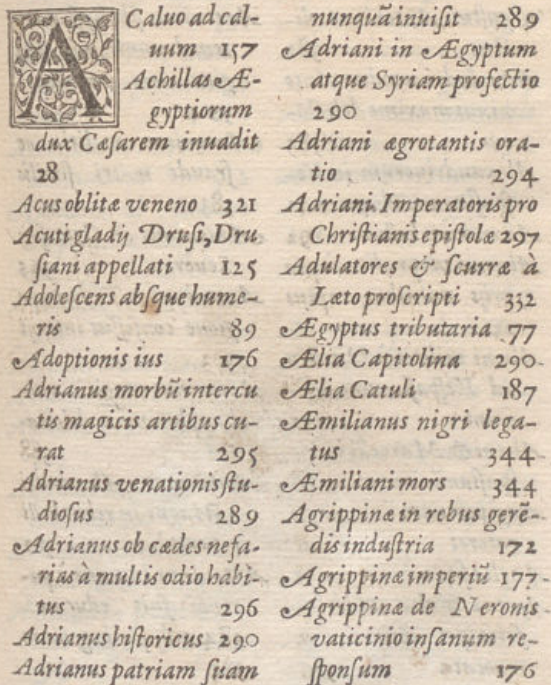 A Caluo ad cal-
uum 157
Achillas Æ-
gyptiorum
dux Cæſarem inuadit
28
Acus oblitæ veneno 321
Acuti gladij Druſi, Dru
ſiani appellati 125
Adoleſcens abſque hume-
ris 89
Adoptionis ius 176
Adrianus morbū intercu
tis magicis artibus cu-
rat 295
Adrianus venationis ſtu-
dioſus 289
Adrianus ob cædes nefa-
rias à multis odio habi-
tus 296
Adrianus hiſtoricus 290
Adrianus patriam ſuam
nunquā inuiſit 289
Adriani in Ægyptum
atque Syriam profectio
290
Adriani ægrotantis ora-
tio 294
Adriani Imperatoris pro
Chriſtianis epiſtolæ 297
Adulatores & ſcurræ à
Læto proſcripti 332
Ægyptus tributaria 77
Ælia Capitolina 290
Ælia Catuli 187
Æmilianus nigri lega-
tus 344
Æmiliani mors 344
Agrippinæ in rebus gerē-
dis induſtria 172
Agrippinæ imperiū 177
Agrippinæ de Neronis
vaticinio inſanum re-
ſponſum 176